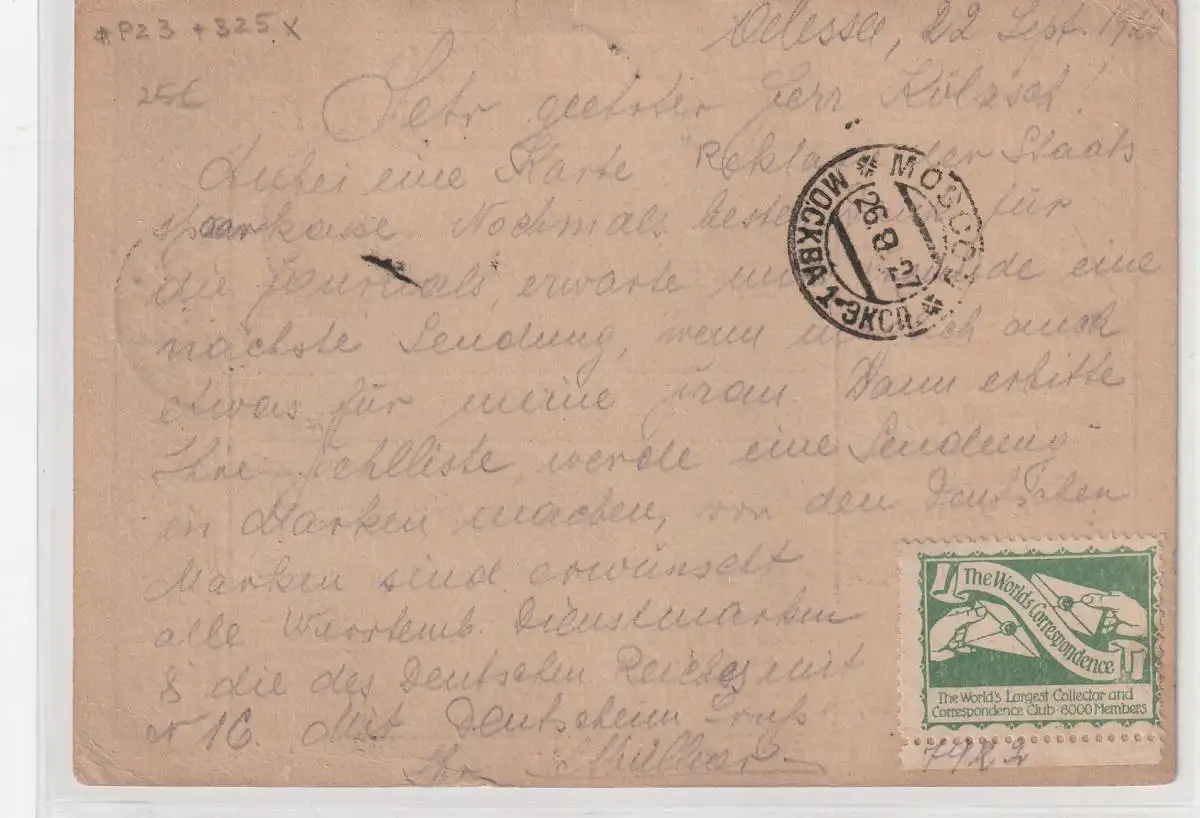 *P23 + 325 X
25£
Odessa, 22 Sept. 192
Sehr geehrter Herr Kölzsch!
Anbei eine Karte "Reklame der Staats
sparkasse. Nochmals besten Dank für
die Journals, erwarte eine
nächste Sendung, wenn auch
etwas für meine Frau. Dann erbitte
Ihre Fehlliste, werde eine Sendung
in Marken machen, von den Deutschen
Marken sind erwünscht
alle Württemb. Dienstmarken
& die des Deutschen Reiches mit
№ 16. Mit Deutschem Gruß
Ihr
MOSCOU
МОСКВА 1-ЭКСП.
26.9.27
The World's Correspondence
The World's Largest Collector and
Correspondence Club-8000 Members